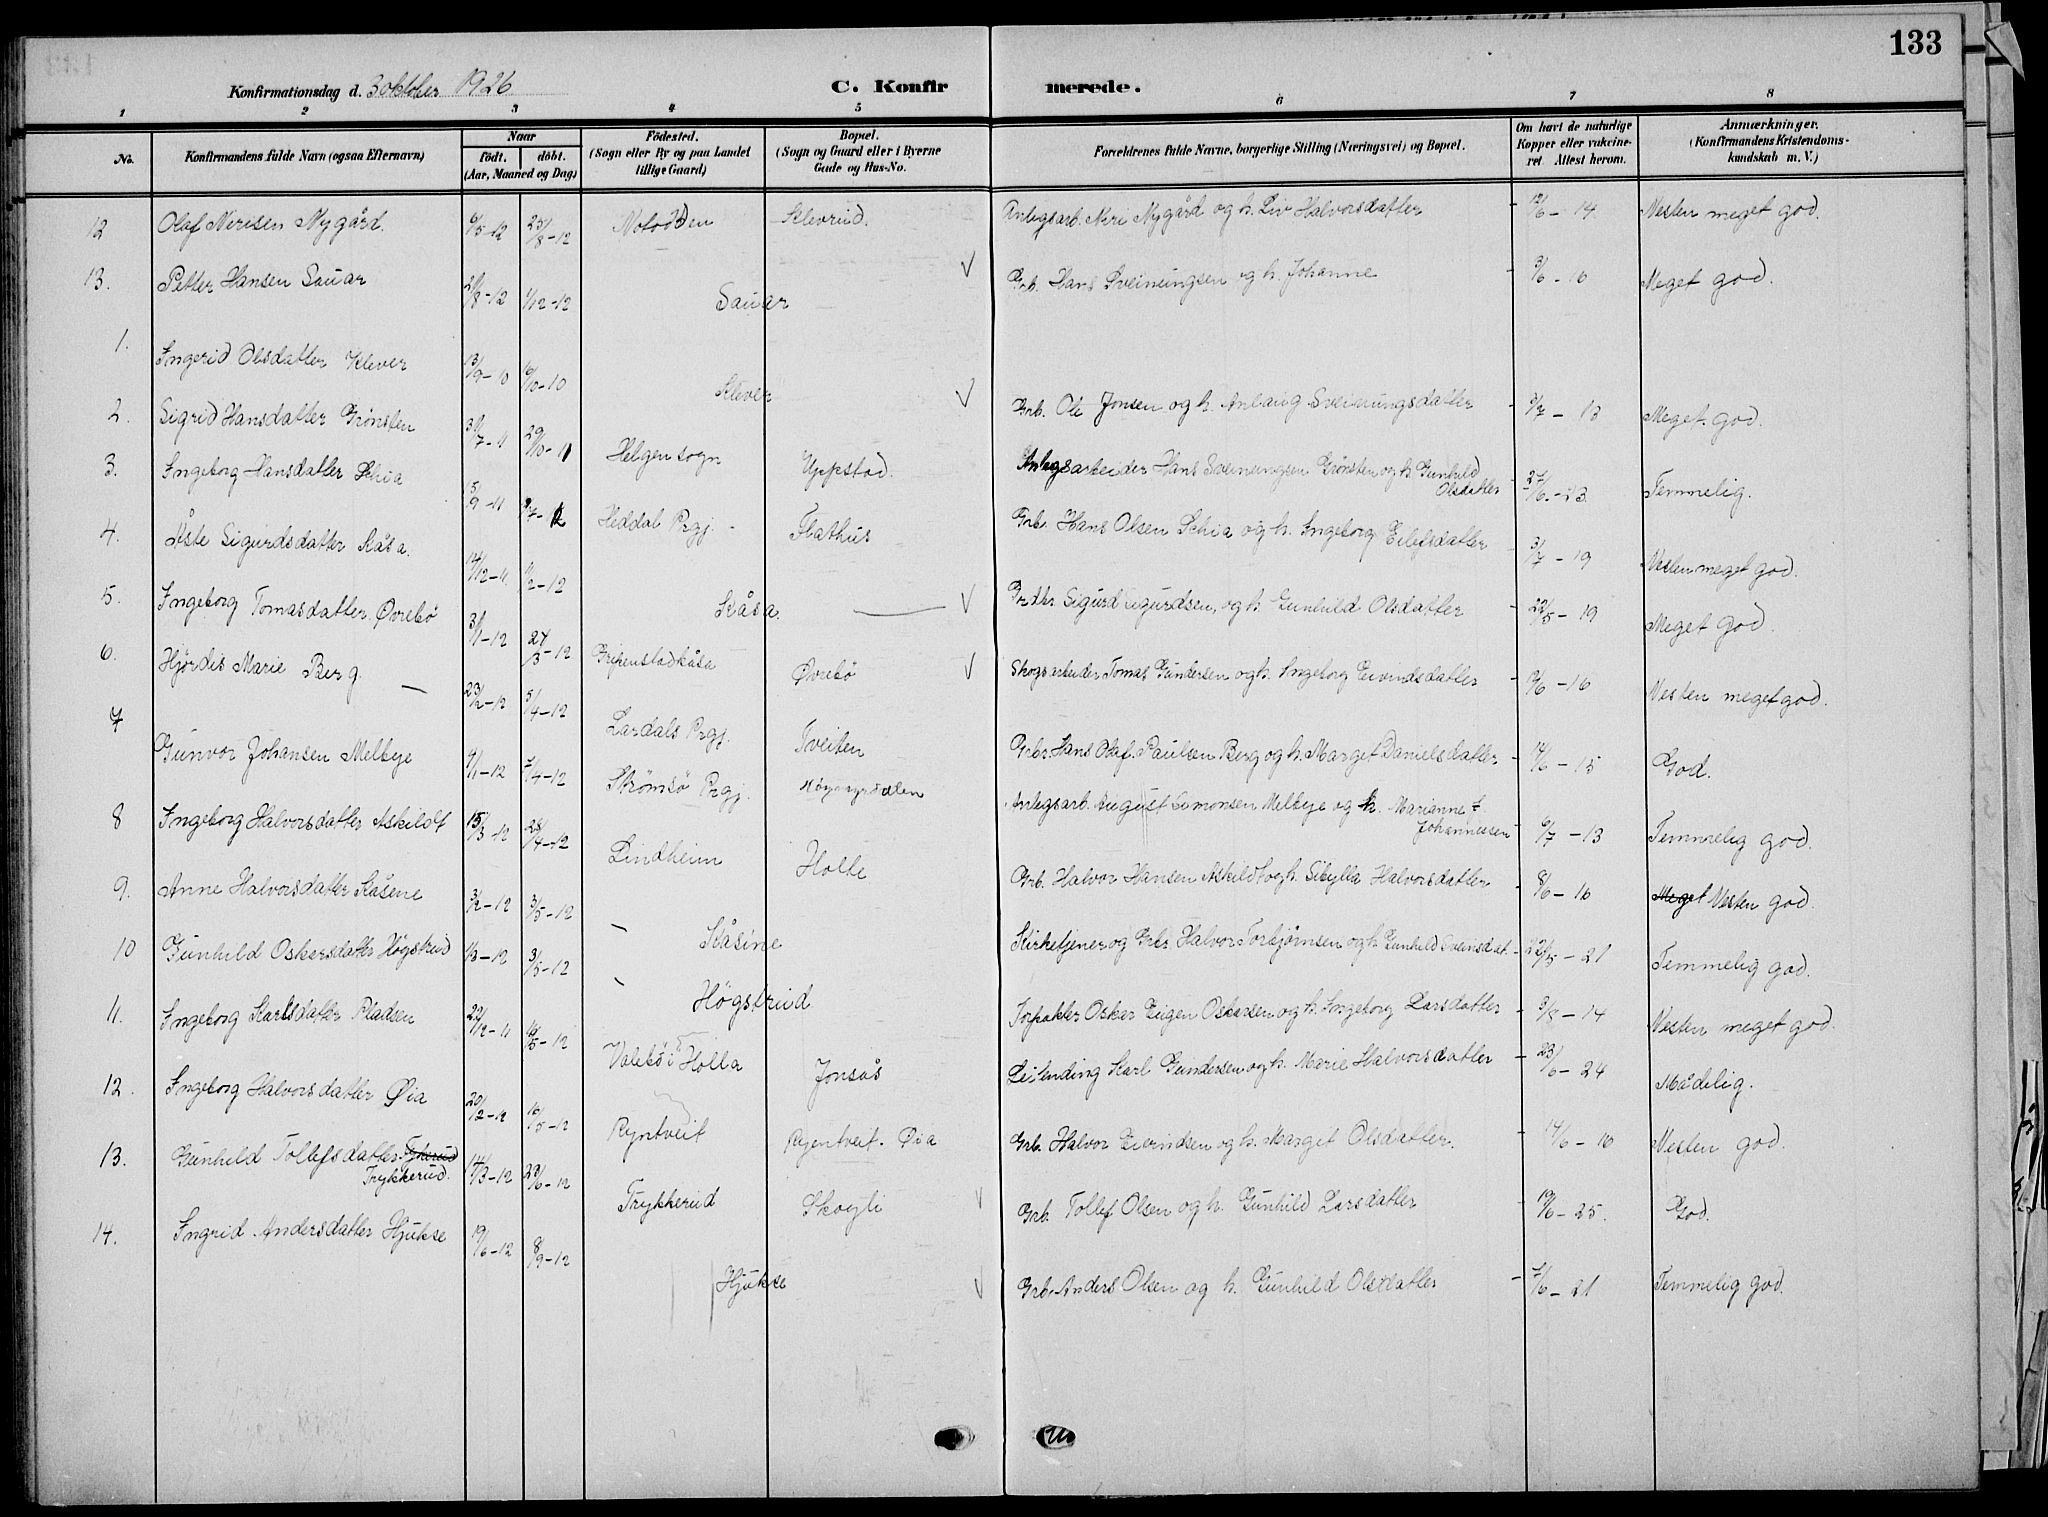 133
Konfirmationsdag d. 3 oktober 1926 C. Konfirmerede.
1 2 3 4 5 6 7 8
No. Konfirmandens fulde Navn (ogsaa Efternavn) Naar født. døbt. (Aar, Maaned og Dag) Fødested. (Sogn eller By og paa Landet tillige Gaard) Bopæl. (Sogn og Gaard eller i Byerne Gade og Hus-No. Forældrenes fulde Navne, borgerlige Stilling (Næringsvei) og Bopæl. Om havt de naturlige Kopper eller vakcineret Attest herom. Anmærkninger. (Konfirmandens Kristendomskundskab m. V.)
12 Olaf Nerisen Nygård. 6/5-12 25/8-12 Notodden Klevrud. Anlegsarb. Neri Nygård og h. Liv Halvorsdatter 12/6-14 Nesten meget god.
13. Petter Hansen Sauar 21/8-12 1/12-12 Sauar Grb. Hans Sveinungsen og h. Johanne 3/6-16 Meget god.
1. Ingerid Olsdatter Klever 13/9-10 16/10-10 Klever Grb. Ole Jonsen og h. Anlaug Sveinungsdatter 3/7-13 Meget god.
2. Sigrid Hansdatter Grönsten 31/7-11 29/10-11 Helgen sogn Uppstad. Anlegsarbeider Hans Sveinungsen Grönsten og h. Gunhild Olsdatter 27/6-23 Temmelig.
3. Ingeborg Hansdatter Schia 5/9-11 Heddal Prgj. Flathus Grb. Hans Olsen Schia og h. Ingeborg Eilefsdatter 3/7-19 Nesten meget god.
4. Åste Sigurdsdatter Kåsa. 14/12-11 11/2-12 Kåsa. Sigurd Sigurdsen, og h. Gunhild Olsdatter 22/5-19 Meget god.
5. Ingeborg Tomasdatter Øvrebö 31/1-12 24/3-12 Gripenstadkåsa Øvrebö Skogsarbeider Tomas Gundersen og h. Ingeborg Eivindsdatter 19/6-16 Nesten meget god.
6. Hjördis Marie Berg. 23/2-12 5/4-12 Lardals Prgj. Tveiten Grbr. Hans Olaf Paulsen Berg og h. Marget Danielsdatter 14/6-15 God.
7 Gunvor Johansen Melbye 4/1-12 7/4-12 Strömsö Prgj. Anlegsarb. August Simonsen Melbye og h. Marianne f. Johannessen 6/7-13 Temmelig god.
8 Ingeborg Halvorsdatter Askildt 15/3-12 28/4-12 Lindheim Holte Grb. Halvor Hansen Askildt og h. Sibylla Halvorsdatter 8/6-16 Meget Nesten god.
9. Anne Halvorsdatter Kåsene 3/2-12 3/5-12 Kåsine Kirketjener og Grb. Halvor Torbjörnsen og h. Gunhild Svensdat. 26/5-21 Temmelig god.
10 Gunhild Oskersdatter Högstrud 3/5-12 Högstrud Forpakter Oskar Eugen Oskarsen og h. Ingeborg Larsdatter 9/8-14 Nesten meget god.
11. Ingeborg Karlsdatter Pladsen 22/12-11 16/5-12 Valebö i Holla Jonsås Leilending Karl Gundersen og h. Marie Halvorsdatter 23/6-24 Mådelig.
12. Ingeborg Halvorsdatter Øia 20/2-12 16/5-12 Ryntveit Ryentveit. Øia Grb. Halvor Eivindsen og h. Marget Olsdatter. 14/6-16 Nesten god.
13. Gunhild Tollefsdatter Trykkerud. 14/3-12 23/6-12 Trykkerud Skogli Grb. Tollef Olsen og h. Gunhild Larsdatter 19/6-25. God.
14. Ingrid Andersdatter Hjukse 19/6-12 8/9-12 Hjukse Grb. Anders Olsen og h. Gunhild Olsdatter 7/6-21 Temmelig god.